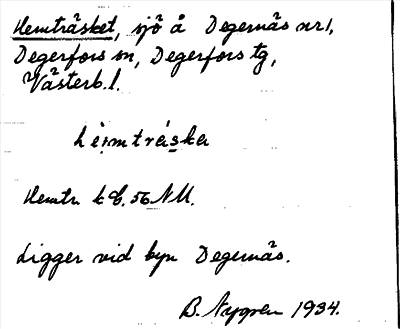 Hemträsket, sjö å Degernäs nr 1,
Degerfors sn, Degerfors tg,
Västerb. l.
Hemtr. k bl. 56 NU.
Ligger vid byn Degernäs.
B. Nygren 1934.